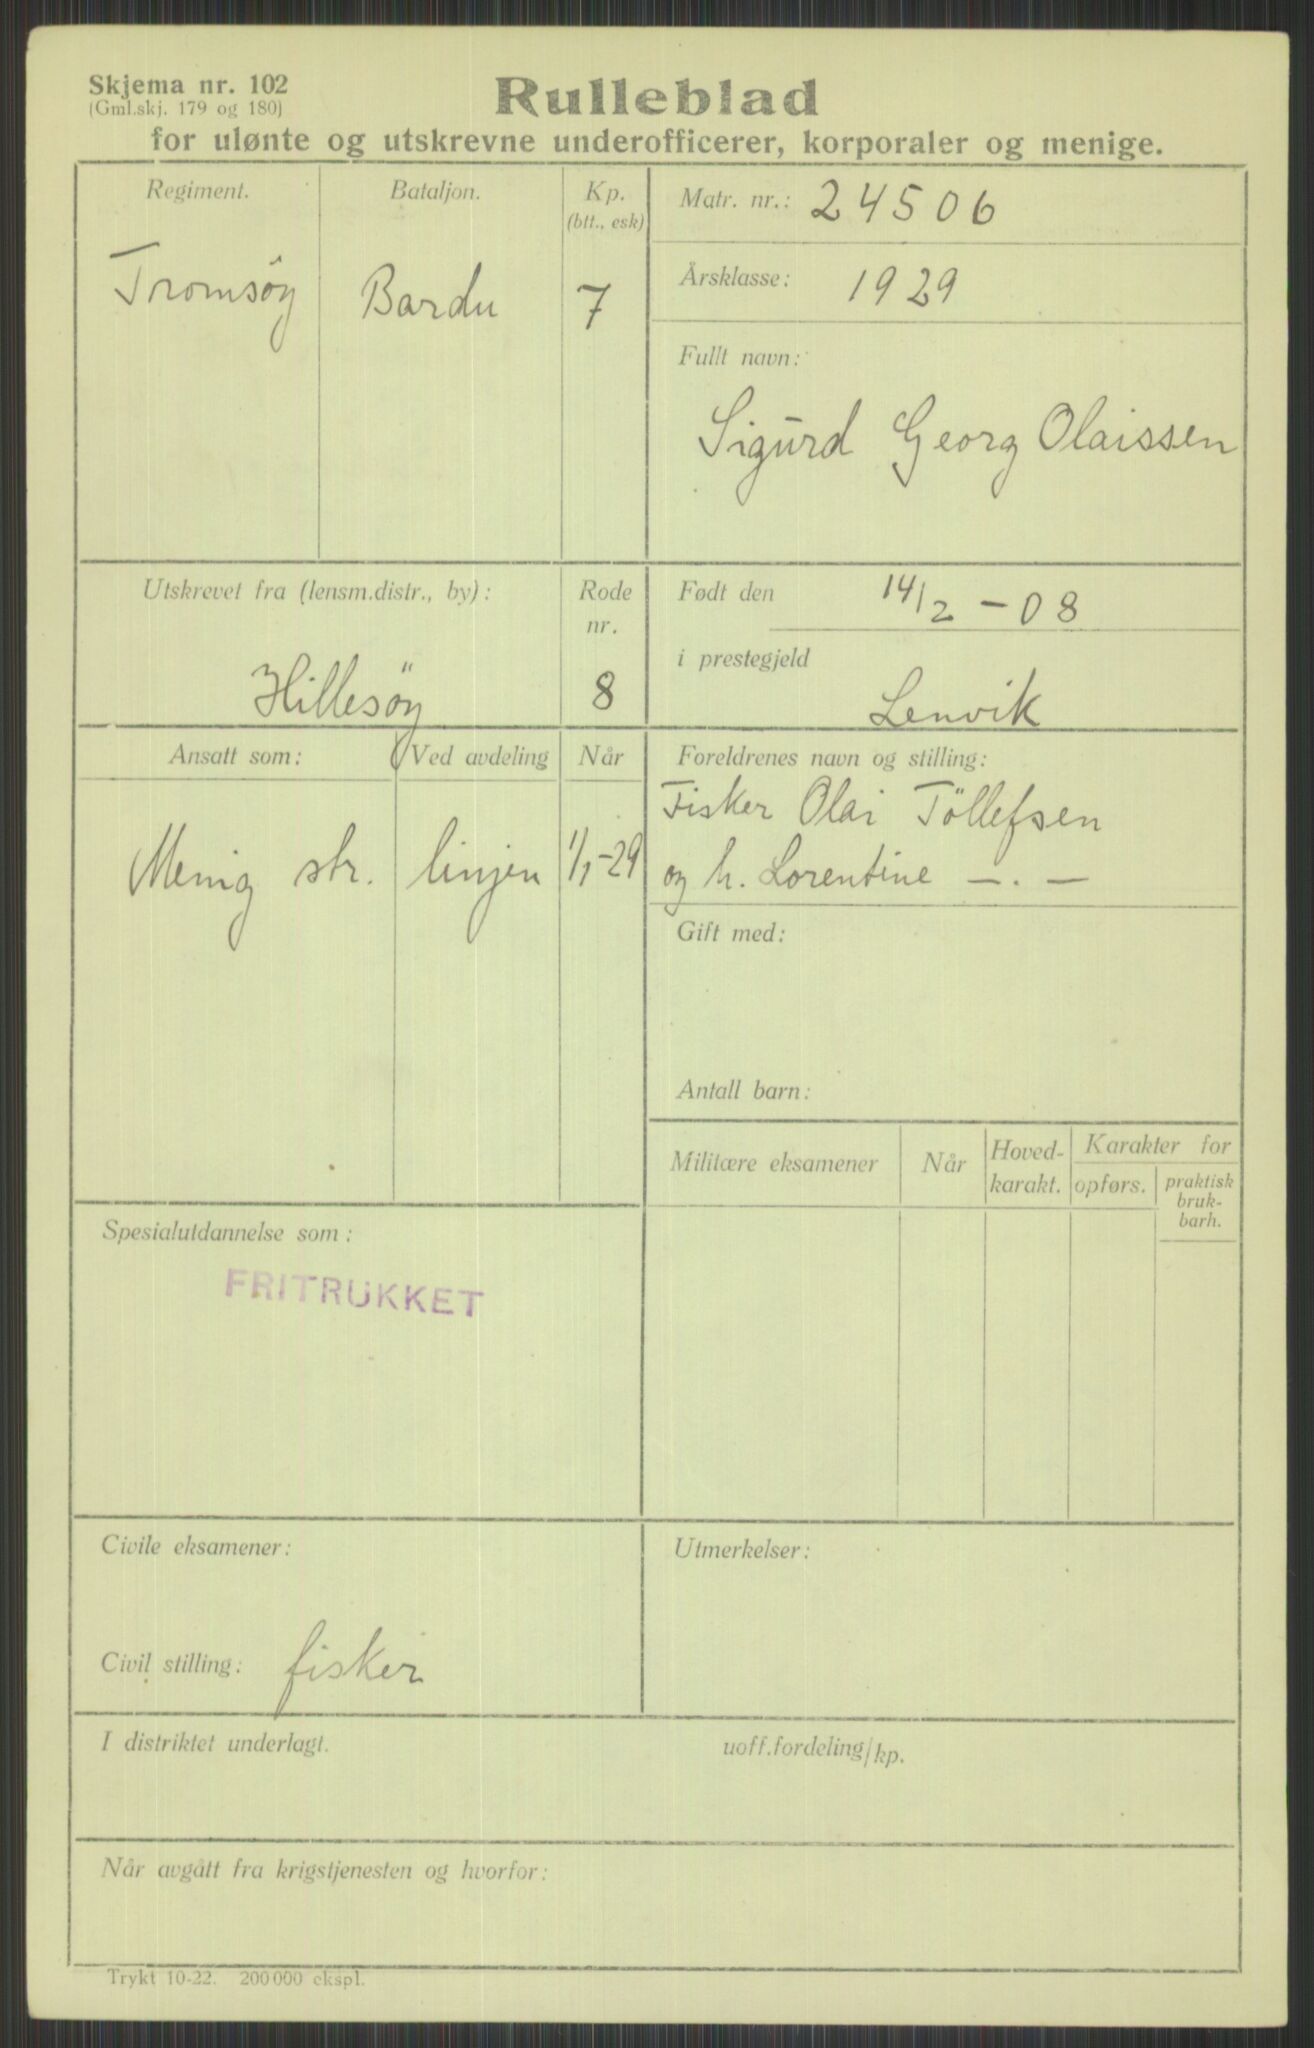 Skjema nr. 102
(Gml.skj. 179 og 180)
Rulleblad
for ulønte og utskrevne underofficerer, korporaler og menige.
Regiment.
Bataljon.
Kp.
(btt., esk)
Tromsöy
Bardu
7
Matr. nr.: 24506
Årsklasse: 1929
Fullt navn:
Sigurd Georg Olaissen
Utskrevet fra (lensm.distr., by):
Rode
nr.
Hillesöy
8
Født den 14/2 - 08
i prestegjeld
Lenvik
Ansatt som:
Ved avdeling
Når
Menig str.
linjen
1/1-29
Foreldrenes navn og stilling:
Fisker Olai Töllefsen
og h. Lorentine — . —
Gift med:
Antall barn:
Militære eksamener
Når
Hoved-
karakt.
Karakter for
opførs.
praktisk
bruk-
barh.
Spesialutdannelse som:
FRITRUKKET
Civile eksamener:
Civil stilling: fisker
Utmerkelser:
I distriktet underlagt.
uoff.fordeling/kp.
Når avgått fra krigstjenesten og hvorfor:
Trykt 10-22. 200 000 ekspl.